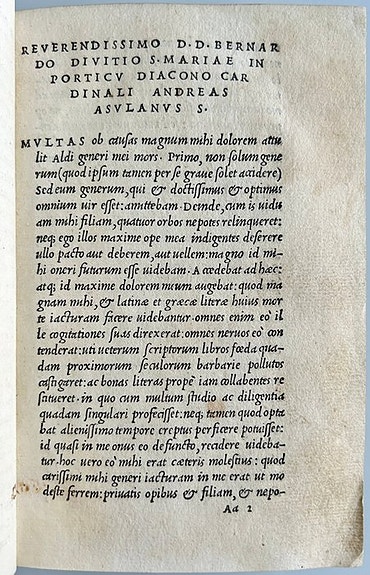 REVERENDISSIMO D. D. BERNAR
DO DIVITIO S. MARIAE IN
PORTICV DIACONO CAR
DINALI ANDREAS
ASVLANVS S.
MVLTAS ob causas magnum mihi dolorem attu
lit Aldi generi mei mors. Primo, non solum gene
rum (quod ipsum tamen per se graue solet accidere)
Sed eum generum, qui & doctissimus & optimus
omnium uir esset: amittebam. Deinde, cum is uidu
am mihi filiam, quatuor orbos nepotes relinqueret:
neq; ego illos maxime ope mea indigentes deserere
ullo pacto aut deberem, aut uellem: magno id mi-
hi oneri futurum esse uidebam. Accedebat ad hæc:
atq; id maxime dolorem meum augebat: quod ma
gnam mihi, & latinæ et græcæ literæ huius mor
te iacturam facere uidebantur. omnes enim eò il
le cogitationes suas direxerat: omnes neruos eò con
tenderat: uti ueterum scriptorum libros fœda qua-
dam proximorum seculorum barbarie pollutos
castigaret: ac bonas literas propè iam collabentes re
stitueret. in quo cum multum studio ac diligentia
quadam singulari profecisset: neq; tamen quod opta
bat alienissimo tempore ereptus perficere potuisset:
id quasi in me onus eo defuncto, recidere uideba-
tur. hoc uero eò mihi erat cæteris molestius: quod
carissimi mihi generi iacturam in me erat ut mo
deste ferrem: priuatis opibus & filiam, & nepo-
Aa 2